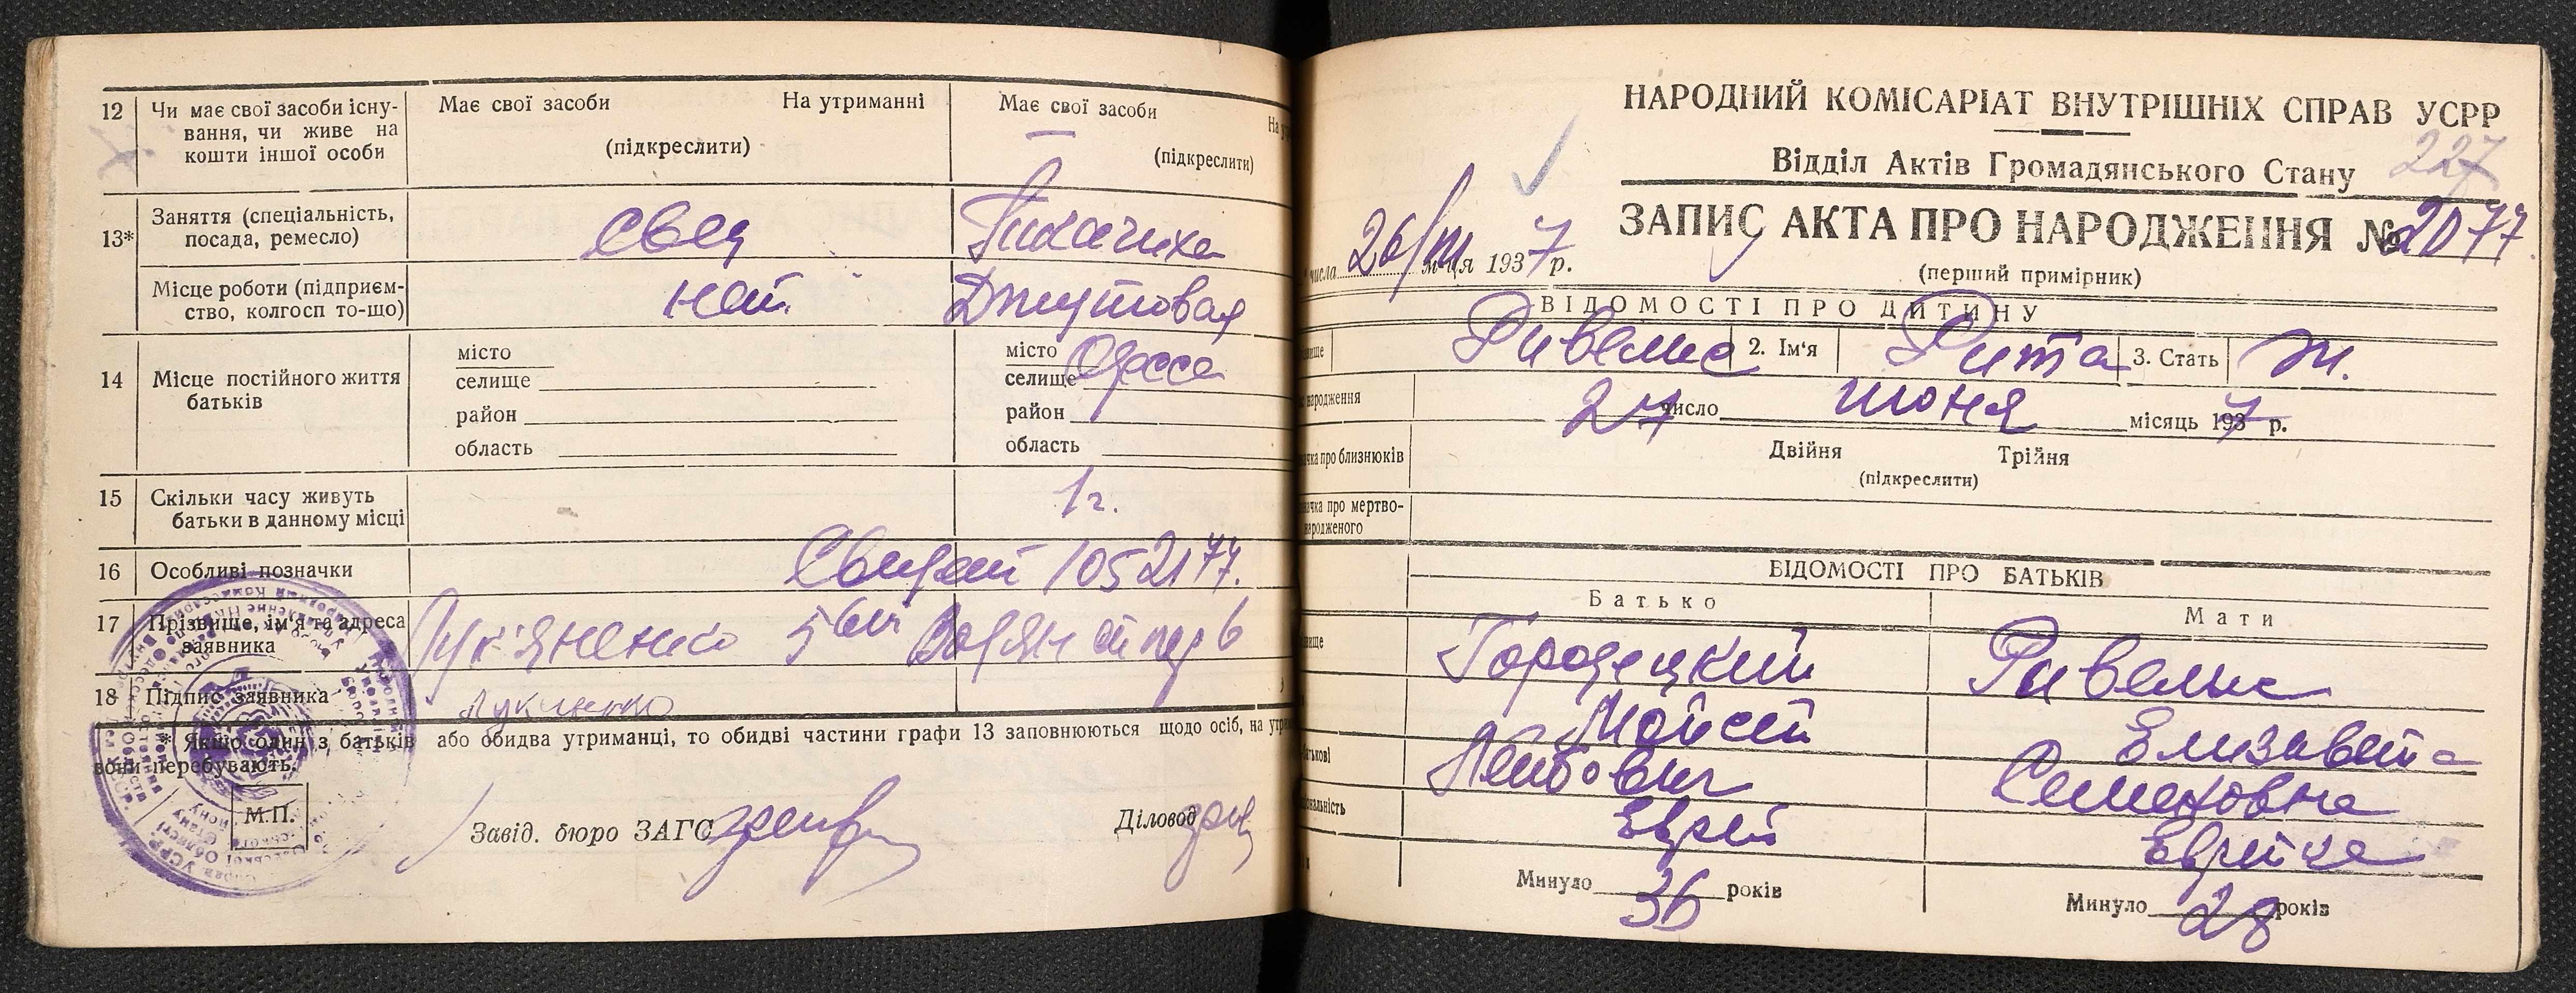 12 Чи має свої засоби існу-
вання, чи живе на
кошти іншої особи
Має свої засоби На утриманні
(підкреслити)
Має свої засоби
(підкреслити)
13* Заняття (спеціальність,
посада, ремесло)
Місце роботи (підприєм-
ство, колгосп то-що)
нет Джутовая
14 Місце постійного життя
батьків
місто
селище
район
область
місто Одесса
селище
район
область
15 Скільки часу живуть
батьки в данному місці
1 г.
16 Особливі позначки
1052177.
17 Прізвище, ім'я та адреса
заявника
Лук'яненко
18 Підпис заявника
* Якщо один з батьків або обидва утриманці, то обидві частини графи 13 заповнюються щодо осіб, на
вони перебувають.
М.П.
Завід. бюро ЗАГС
Діловод
НАРОДНИЙ КОМІСАРІАТ ВНУТРІШНІХ СПРАВ УСРР
Відділ Актів Громадянського Стану
227
ЗАПИС АКТА ПРО НАРОДЖЕННЯ № 2077
числа 26/VII м-ця 1937 р.
(перший примірник)
ВІДОМОСТІ ПРО ДИТИНУ
Ривелис 2. Ім'я Рита 3. Стать ж.
народження 27 число июня місяць 1937 р.
про близнюків
Двійня Трійня
(підкреслити)
про мертво-
народженого
ВІДОМОСТІ ПРО БАТЬКІВ
Батько Мати
Городецкий Ривелис
Мойсей Елизавета
Лейбович Семеновна
Еврей Еврейка
Минуло 36 років
Минуло 28 років